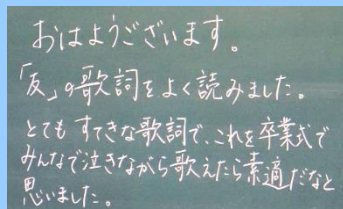 おはようございます。
「友」の歌詞をよく読みました。
とてもすてきな歌詞で、これを卒業式で
みんなで泣きながら歌えたら素適だなと
思いました。